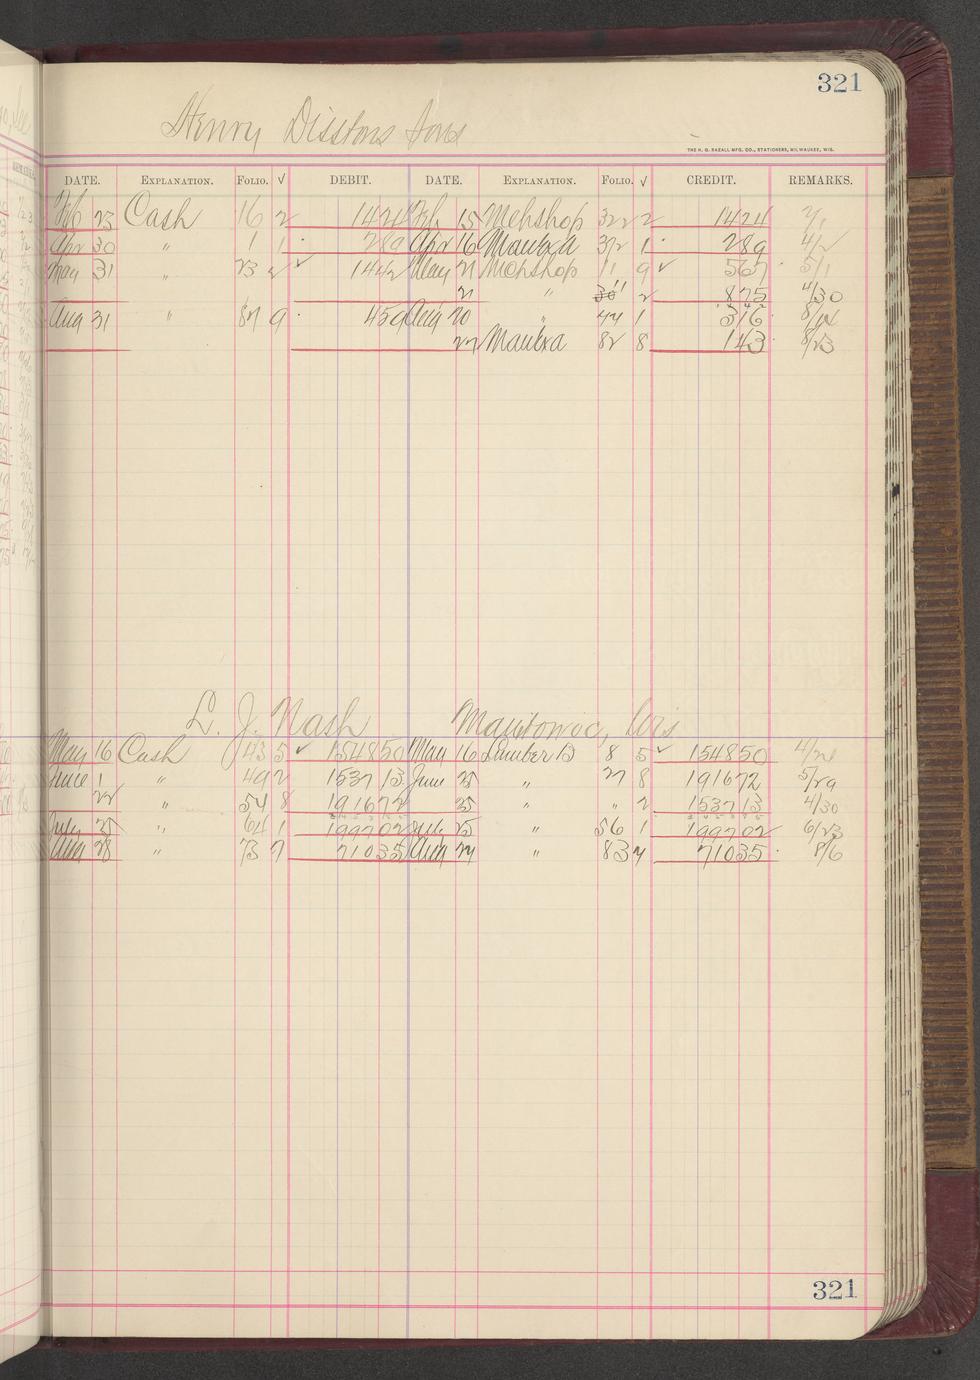 321
Henry Disstons Sons
THE H. G. RAZALL MFG. CO., STATIONERS, MILWAUKEE, WIS.
DATE. EXPLANATION. FOLIO. √ DEBIT. DATE. EXPLANATION. FOLIO. √ CREDIT. REMARKS.
Feb 23 Cash 16 2 1424 Feb 15 Mchshop 322 2 1424 2/1
Apr 30 " 1 1 289 Apr 16 372 1 289 4/2
May 31 " 23 1442 May 21 Mchshop 11 9 √ 567 5/1
21 " 2 875 4/30
Aug 31 " 87 9 459 Aug 20 " 44 1 316
22 82 8 143 8/23
L. J. Nash Manitowoc, Wis
May 16 Cash 43 5 √ 154850 May 16 Lumber B 8 5 √ 154850 4/21
June 1 " 49 2 153713 June 25 " 27 8 191672 5/29
22 " 54 8 191672 25 " " 2 153713 4/30
July 25 " 64 1 199702 July 25 " 56 1 199702 6/23
Aug 28 " 73 7 71035 Aug 24 " 83 71035 8/6
321